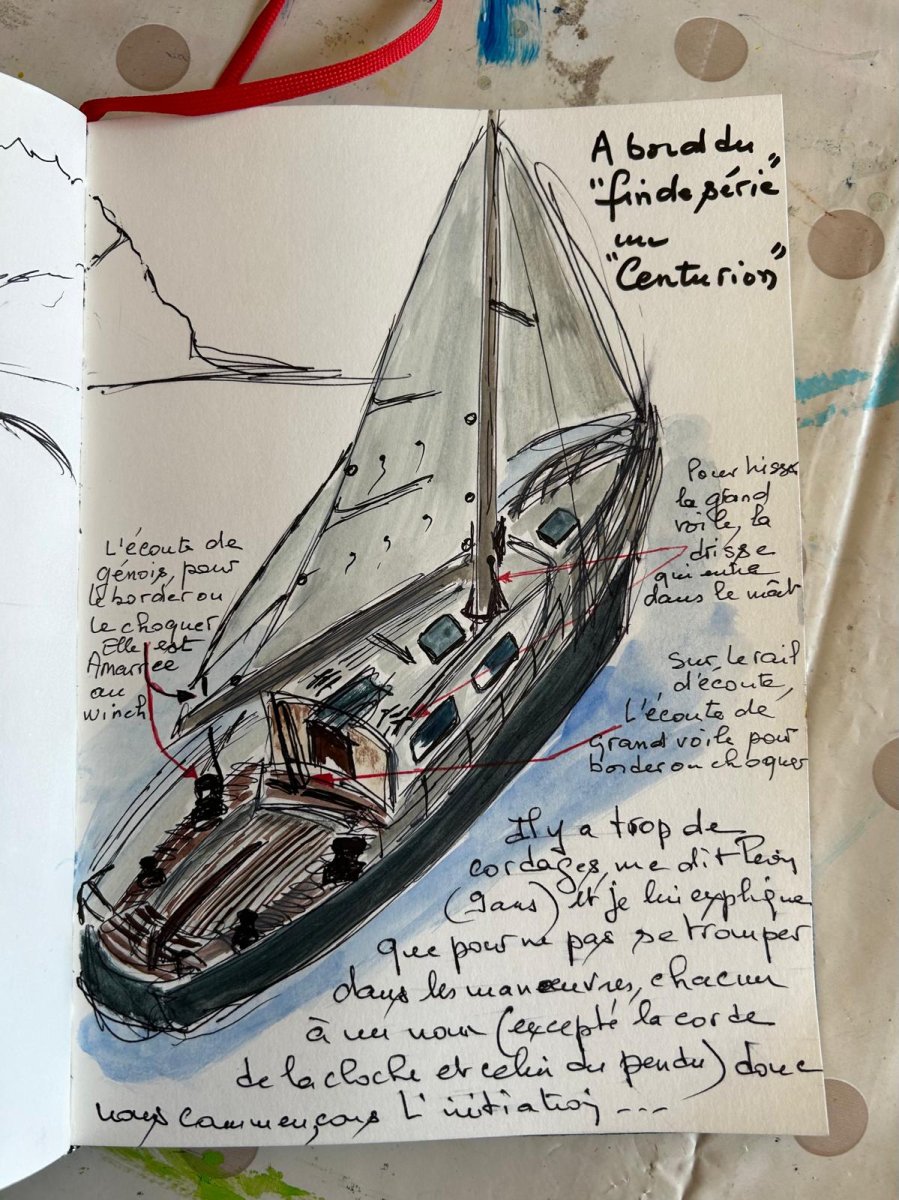 A bord du
"fin de série"
un
"Centurion"
Pour hisser
la grand
voile, la
drisse
qui entre
dans le mât
L'écoute de
génois, pour
le border ou
le choquer
Elle est
Amarrée
au
winch
Sur le rail
d'écoute,
L'écoute de
grand voile pour
border ou choquer
Il y a trop de
cordages, me dit
(9ans) et je lui explique
que pour ne pas se tromper
dans les manœuvres, chacun
à un nom (excepté la corde
de la cloche et celui du pendu) donc
nous commençons L'initiation ---